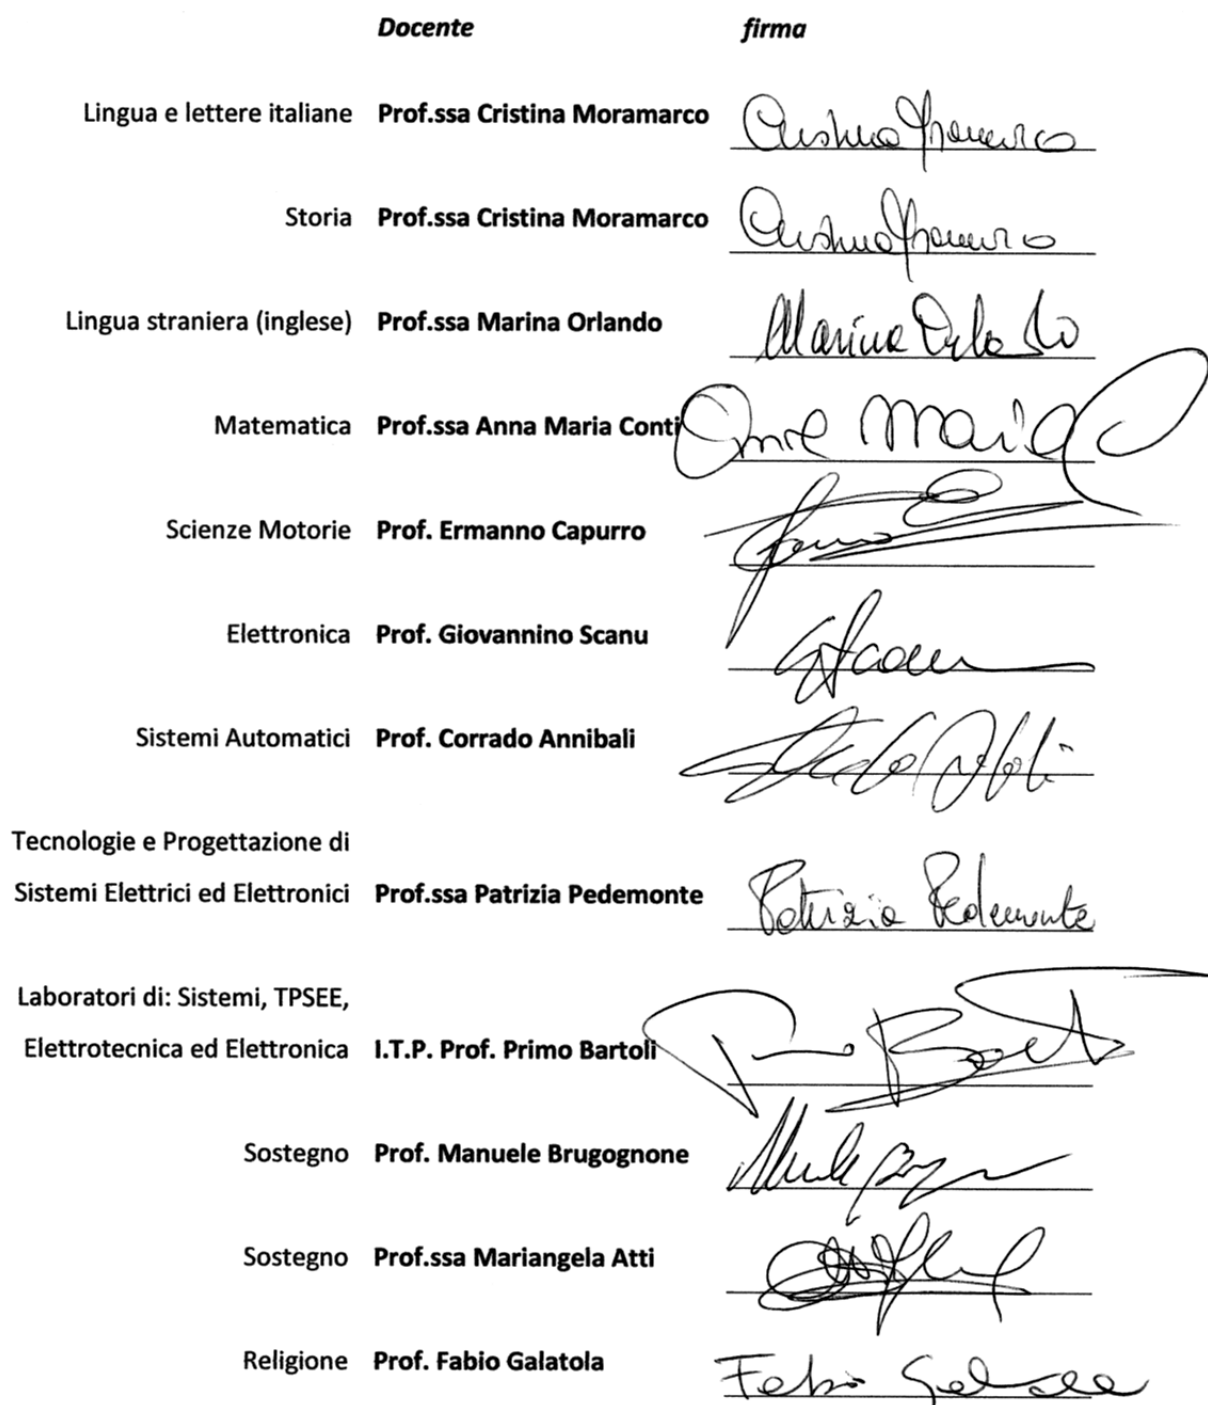 Docente firma
Lingua e lettere italiane Prof.ssa Cristina Moramarco Cristina Moramarco
Storia Prof.ssa Cristina Moramarco Cristina Moramarco
Lingua straniera (inglese) Prof.ssa Marina Orlando Marina Orlando
Matematica Prof.ssa Anna Maria Conti Anna Maria C
Scienze Motorie Prof. Ermanno Capurro
Elettronica Prof. Giovannino Scanu
Sistemi Automatici Prof. Corrado Annibali
Tecnologie e Progettazione di
Sistemi Elettrici ed Elettronici Prof.ssa Patrizia Pedemonte Patrizia Pedemonte
Laboratori di: Sistemi, TPSEE,
Elettrotecnica ed Elettronica I.T.P. Prof. Primo Bartoli
Sostegno Prof. Manuele Brugognone
Sostegno Prof.ssa Mariangela Atti
Religione Prof. Fabio Galatola Fabio Galatola